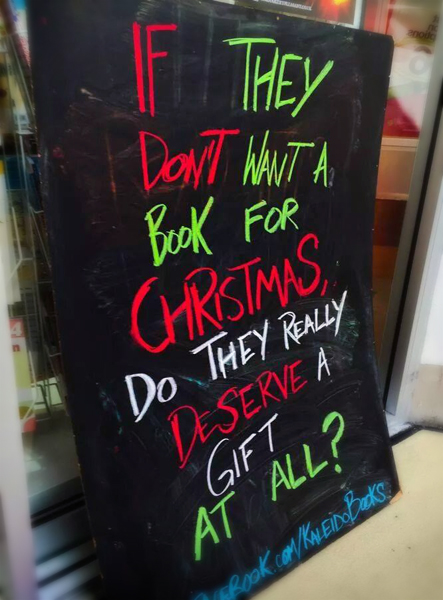 IF THEY
DON'T WANT A
BOOK FOR
CHRISTMAS,
DO THEY REALLY
DESERVE A
GIFT
AT ALL?
FACEBOOK.COM/KALEIDOBOOKS